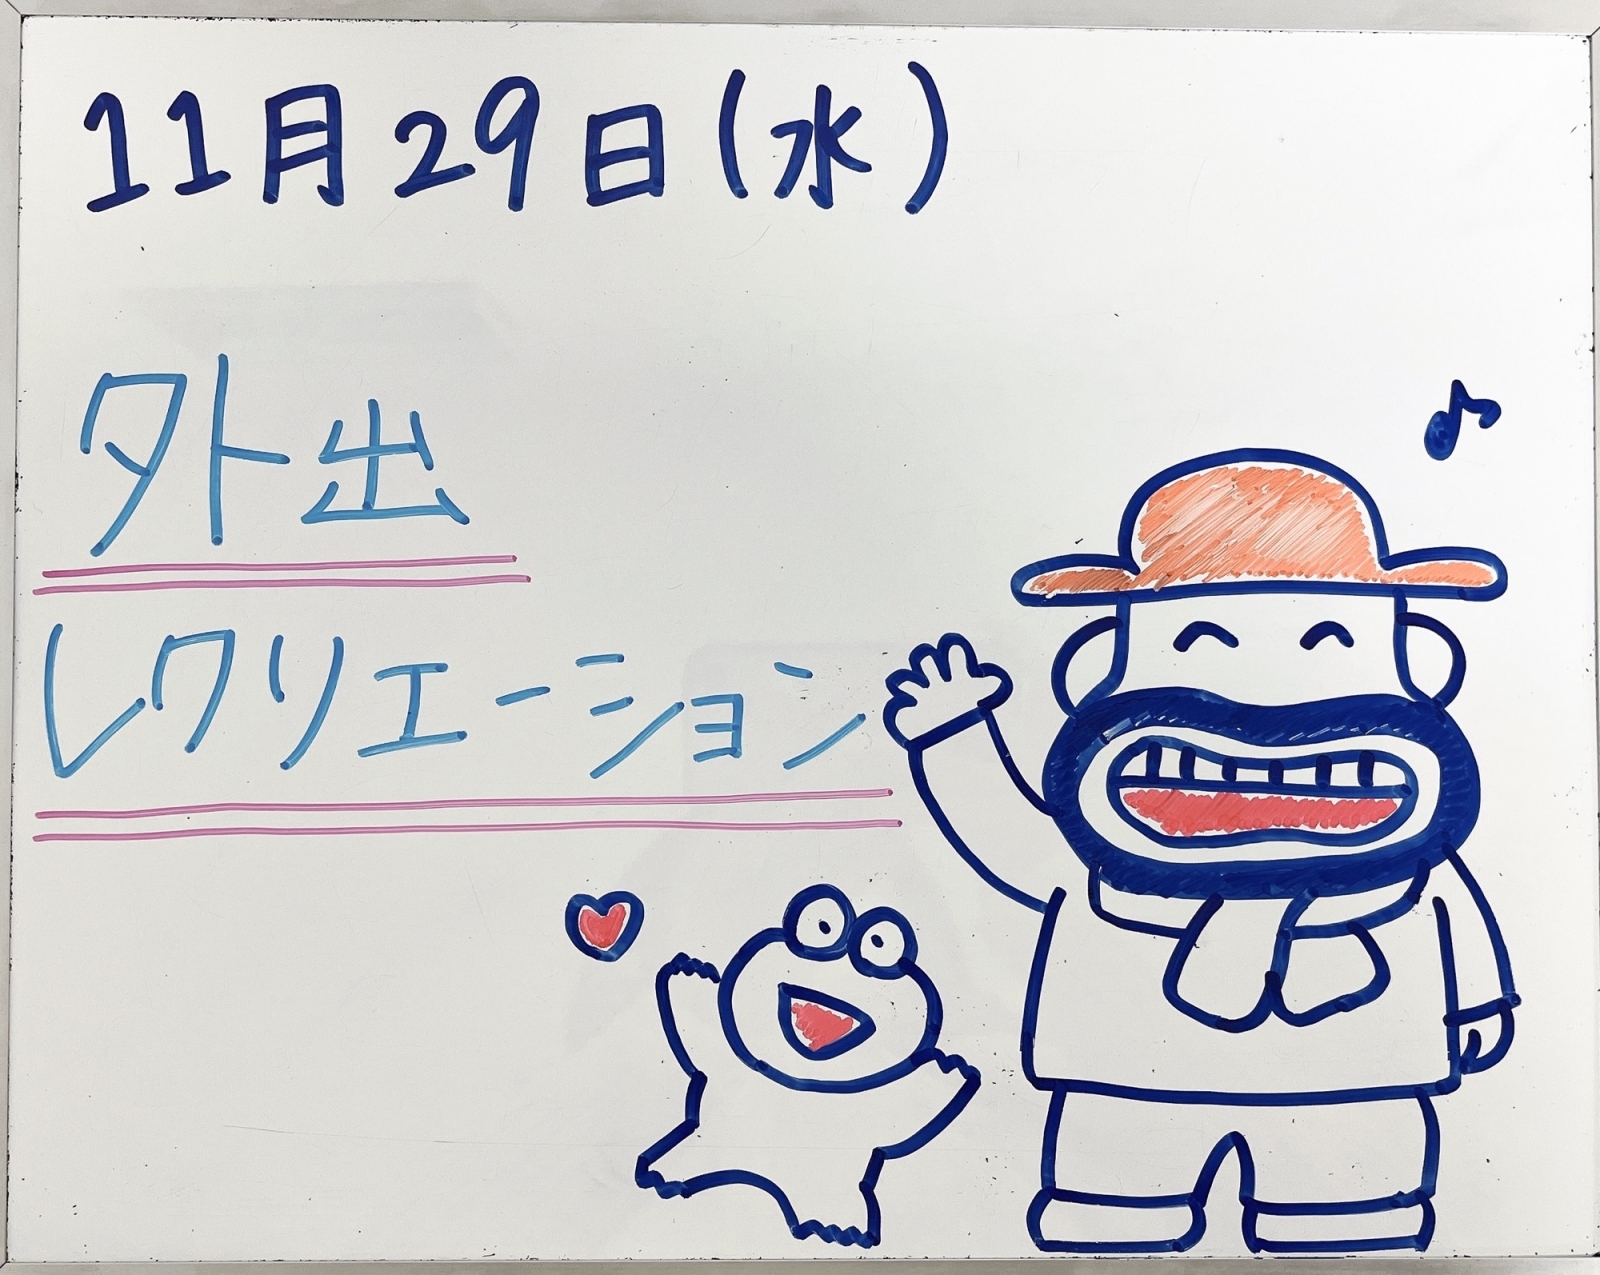 11月29日(水)
外出
レクリエーション